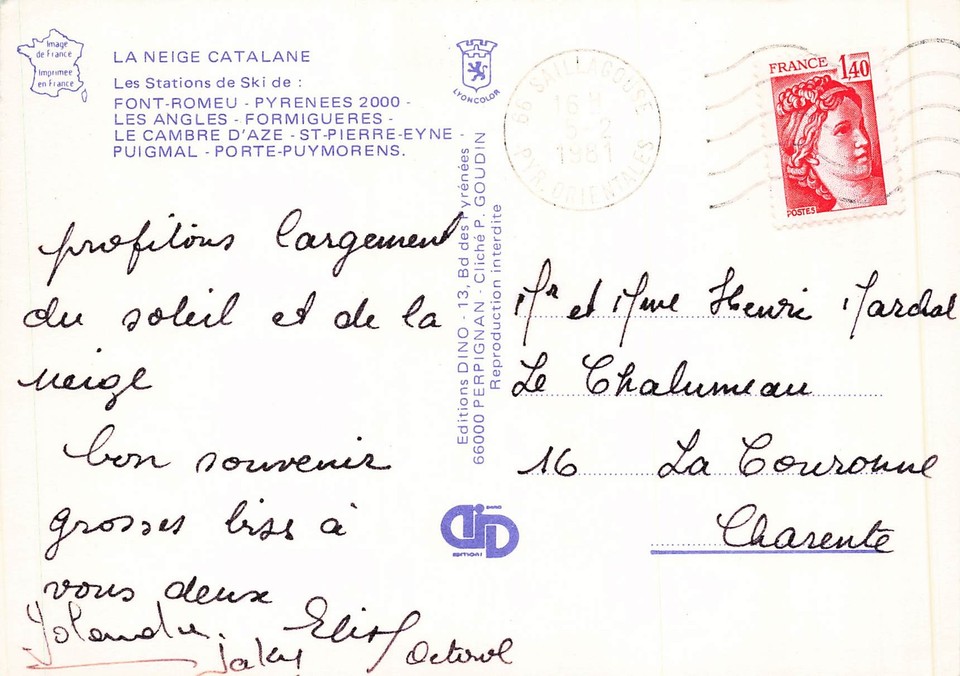 Image
de France
Imprimée
en France
LA NEIGE CATALANE
Les Stations de Ski de :
FONT-ROMEU - PYRENEES 2000 -
LES ANGLES - FORMIGUERES -
LE CAMBRE D'AZE - ST-PIERRE-EYNE -
PUIGMAL - PORTE-PUYMORENS.
LYONCOLOR
66 SAILLAGOUSE
16 H
1981
PYR. ORIENTALES
FRANCE 1,40
POSTES
profitons largement
du soleil et de la
neige
bon souvenir
grosses bises à
vous deux
Jaky
Editions DINO - 13, Bd des Pyrénées
66000 PERPIGNAN - Cliché P. GOUDIN
Reproduction interdite
DINO
EDITIONS
Mr et Mme Henri
Le Chalumeau
16 La Couronne
Charente